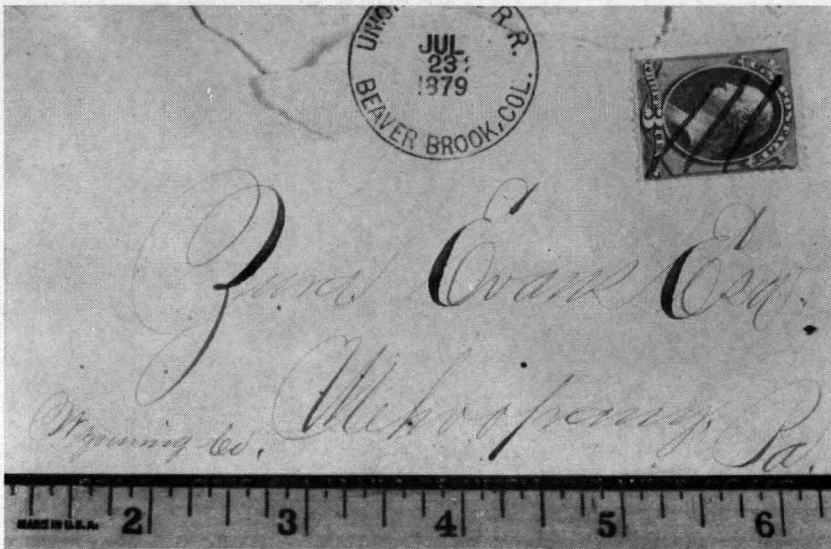 R.R.
JUL
23
1879
BEAVER BROOK, COL.
Evans Esq.
Mehoopany,
Wyoming Co. Pa.
MADE IN U.S.A. 2 3 4 5 6